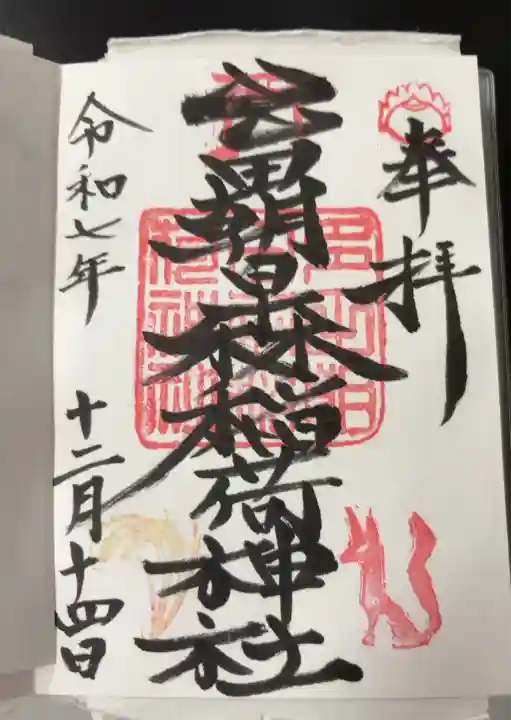 奉拝
朝日森稲荷神社
令和七年 十二月十四日